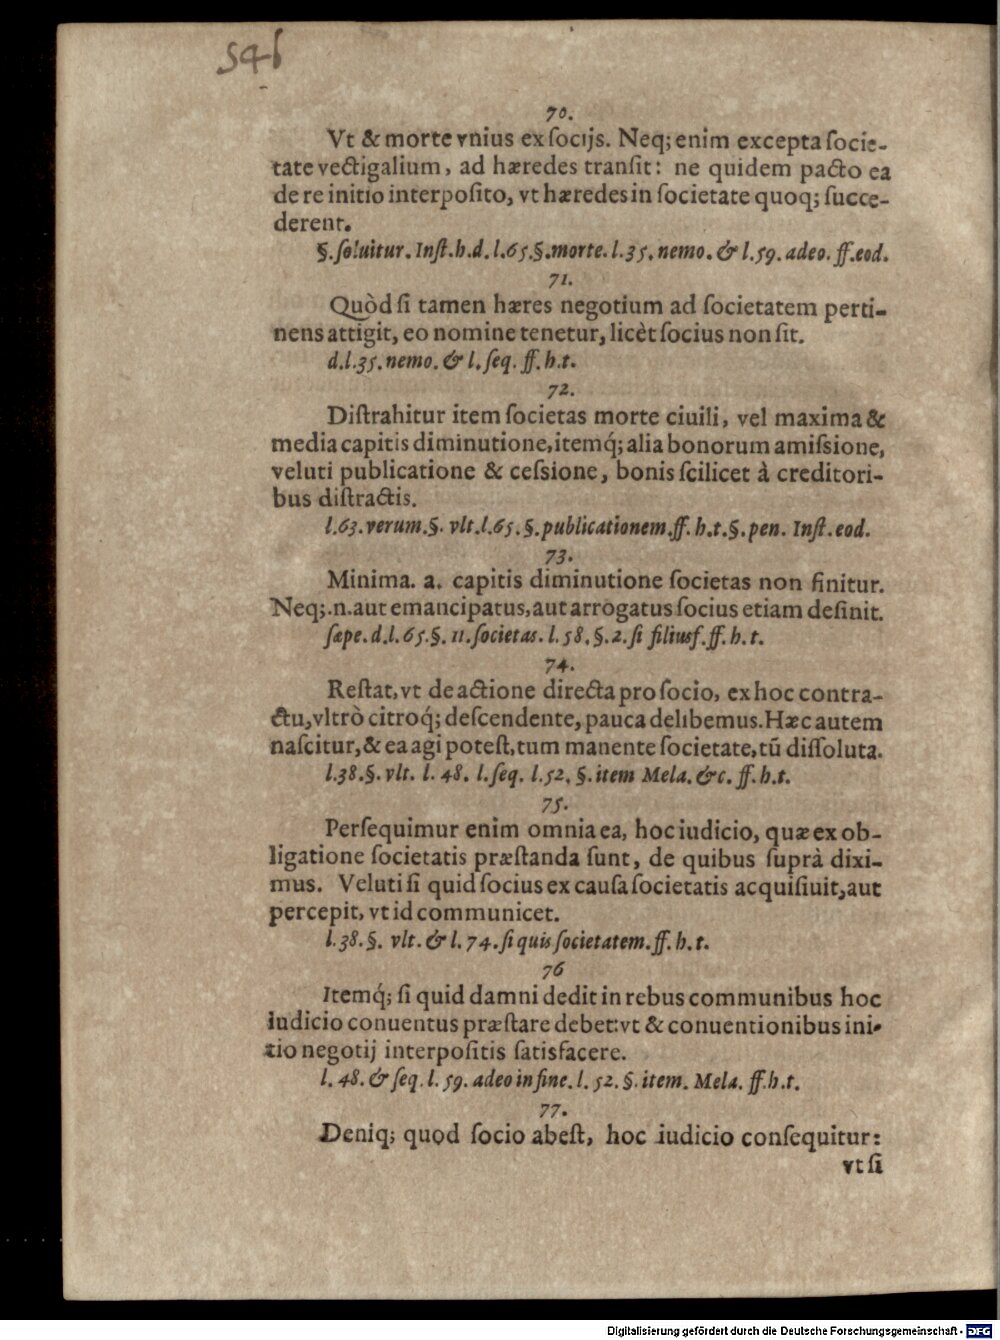 546
70.
Vt & morte vnius ex socijs. Neq; enim excepta socie-
tate vectigalium, ad hæredes transit: ne quidem pacto ea
de re initio interposito, vt hæredes in societate quoq; succe-
derent.
§. soluitur. Inst. h. d. l. 65. §. morte. l. 35. nemo. & l. 59. adeo. ff. eod.
71.
Quòd si tamen hæres negotium ad societatem perti-
nens attigit, eo nomine tenetur, licèt socius non sit.
d. l. 35. nemo. & l. seq. ff. h. t.
72.
Distrahitur item societas morte ciuili, vel maxima &
media capitis diminutione, itemq́; alia bonorum amissione,
veluti publicatione & cessione, bonis scilicet à creditori-
bus distractis.
l. 63. verum. §. vlt. l. 65. §. publicationem. ff. h. t. §. pen. Inst. eod.
73.
Minima. a. capitis diminutione societas non finitur.
Neq; .n. aut emancipatus, aut arrogatus socius etiam desinit.
sæpe. d. l. 65. §. 11. societas. l. 58. §. 2. si filiusf. ff. h. t.
74.
Restat, vt de actione directa pro socio, ex hoc contra-
ctu, vltrò citroq́; descendente, pauca delibemus. Hæc autem
nascitur, & ea agi potest, tum manente societate, tū dissoluta.
l. 38. §. vlt. l. 48. l. seq. l. 52. §. item Mela. &c. ff. h. t.
75.
Persequimur enim omnia ea, hoc iudicio, quæ ex ob-
ligatione societatis præstanda sunt, de quibus suprà dixi-
mus. Veluti si quid socius ex causa societatis acquisiuit, aut
percepit, vt id communicet.
l. 38. §. vlt. & l. 74. si quis societatem. ff. h. t.
76
Itemq́; si quid damni dedit in rebus communibus hoc
iudicio conuentus præstare debet: vt & conuentionibus ini-
tio negotij interpositis satisfacere.
l. 48. & seq. l. 59. adeo in fine. l. 52. §. item. Mela. ff. h. t.
77.
Deniq; quod socio abest, hoc iudicio consequitur:
vt si
Digitalisierung gefördert durch die Deutsche Forschungsgemeinschaft - DFG